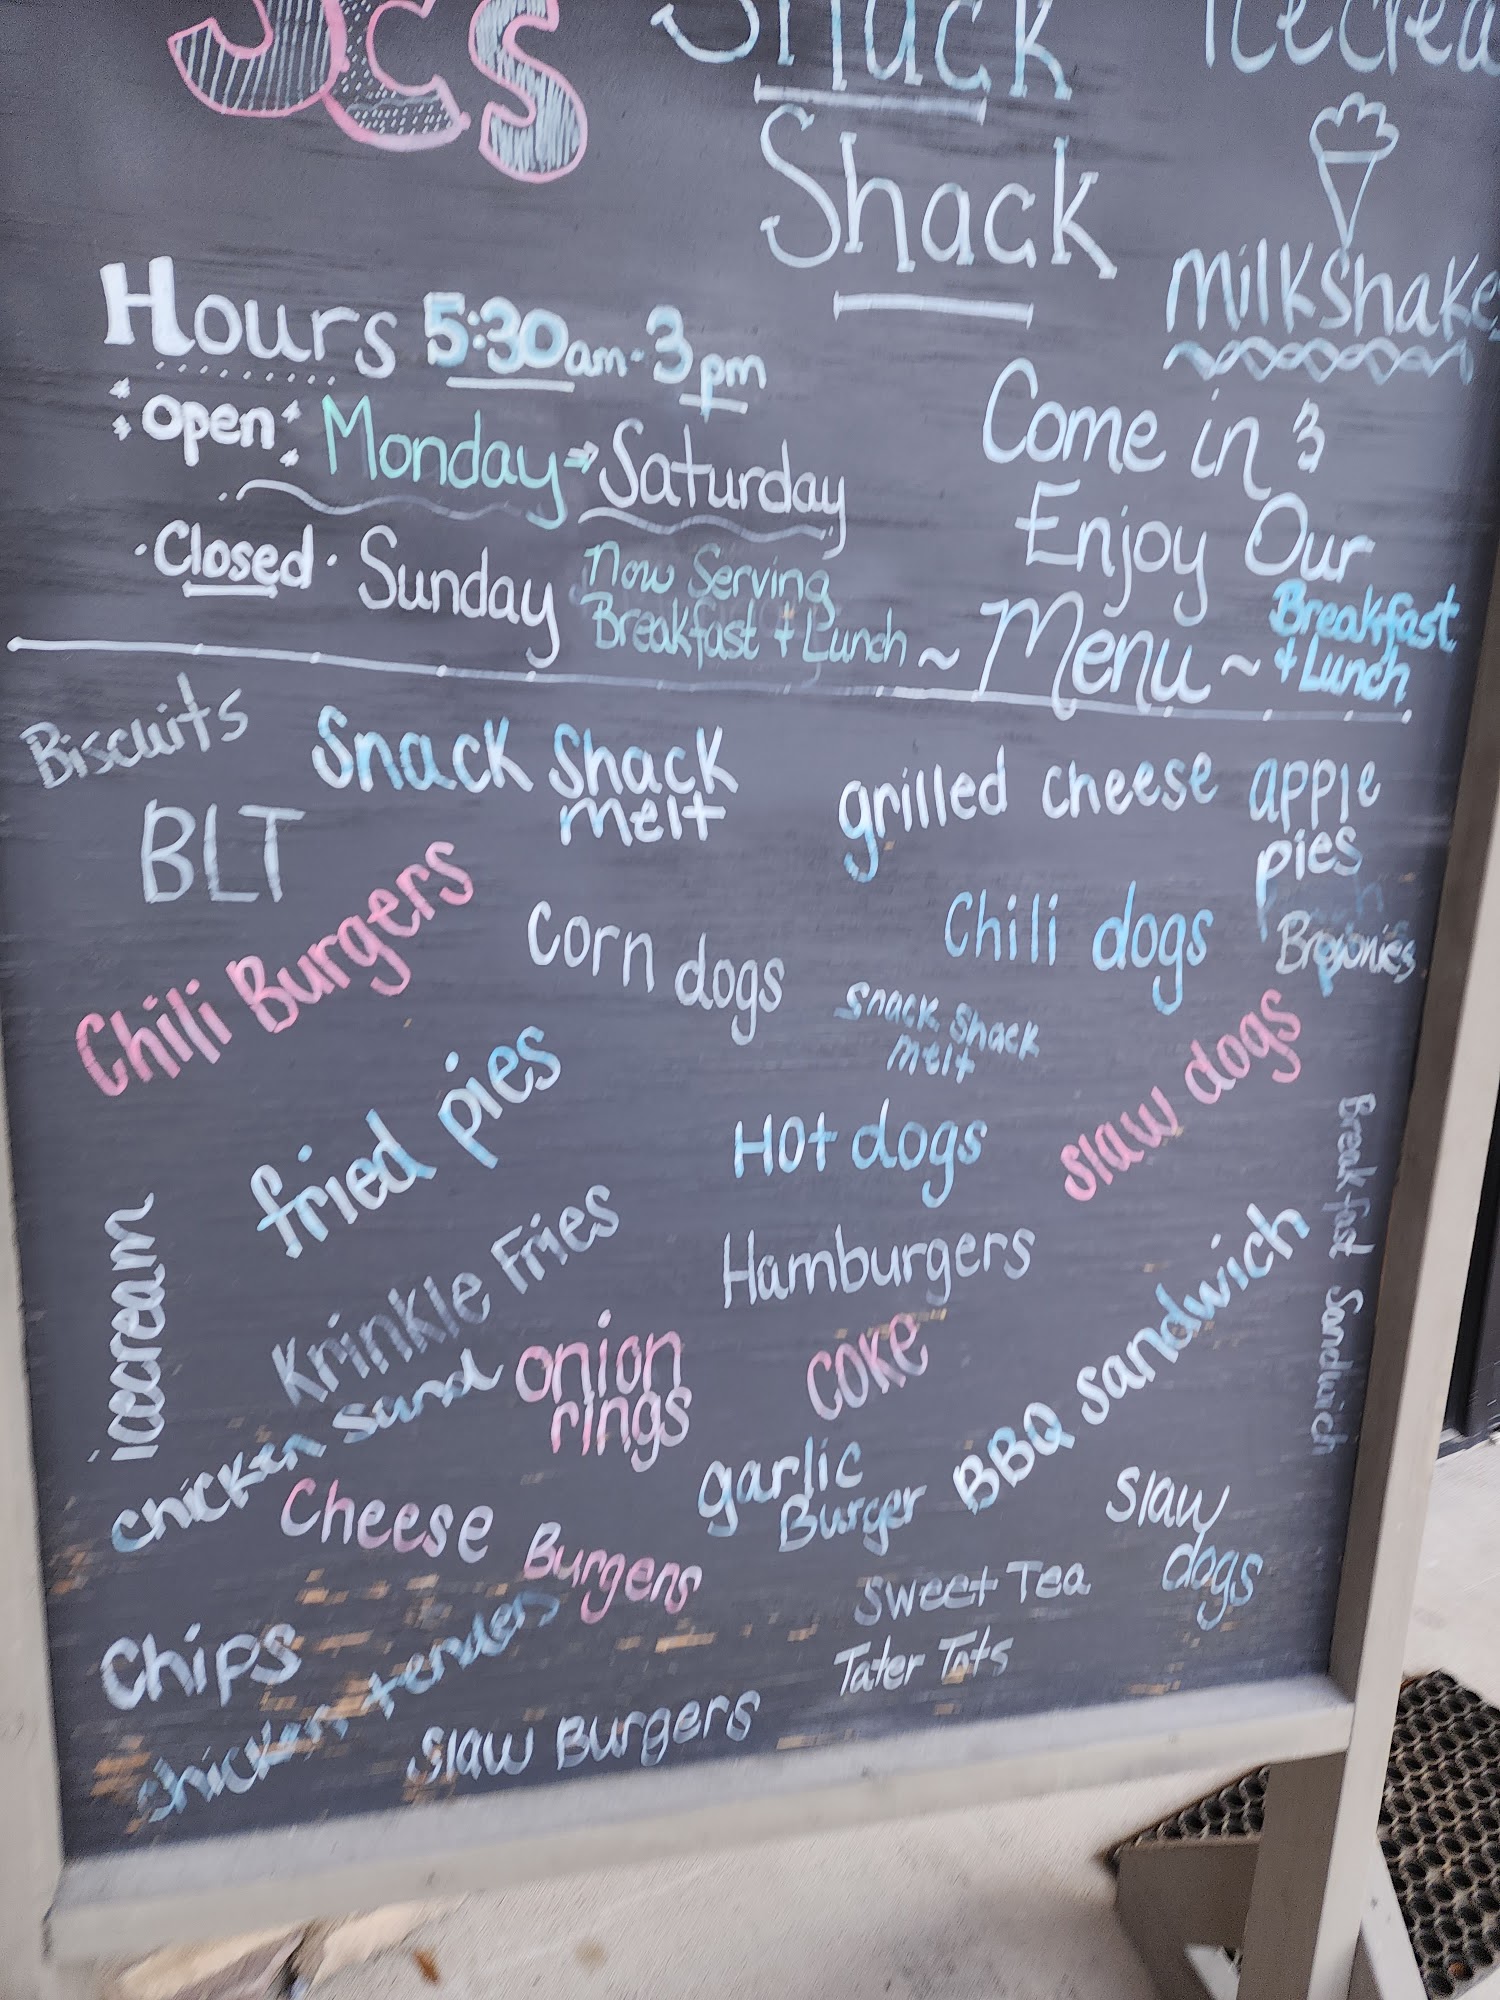 JCS
Snack
Shack
Icecrea
Milkshakes
Hours 5:30am-3pm
Open Monday → Saturday
Closed Sunday
Now Serving
Breakfast + Lunch
Come in &
Enjoy Our
~ Menu ~
Breakfast
+ Lunch
Biscuits
Snack Shack
melt
grilled cheese
apple
pies
BLT
Chili Burgers
Corn dogs
Chili dogs
Brownies
Snack Shack
melt
slaw dogs
fried pies
Hot dogs
Breakfast Sandwich
icecream
Krinkle Fries
Hamburgers
chicken sand
onion
rings
COKE
BBQ Sandwich
Cheese Burgers
garlic
Burger
Slaw
dogs
Sweet Tea
Chips
chicken tenders
Tater Tots
Slaw Burgers